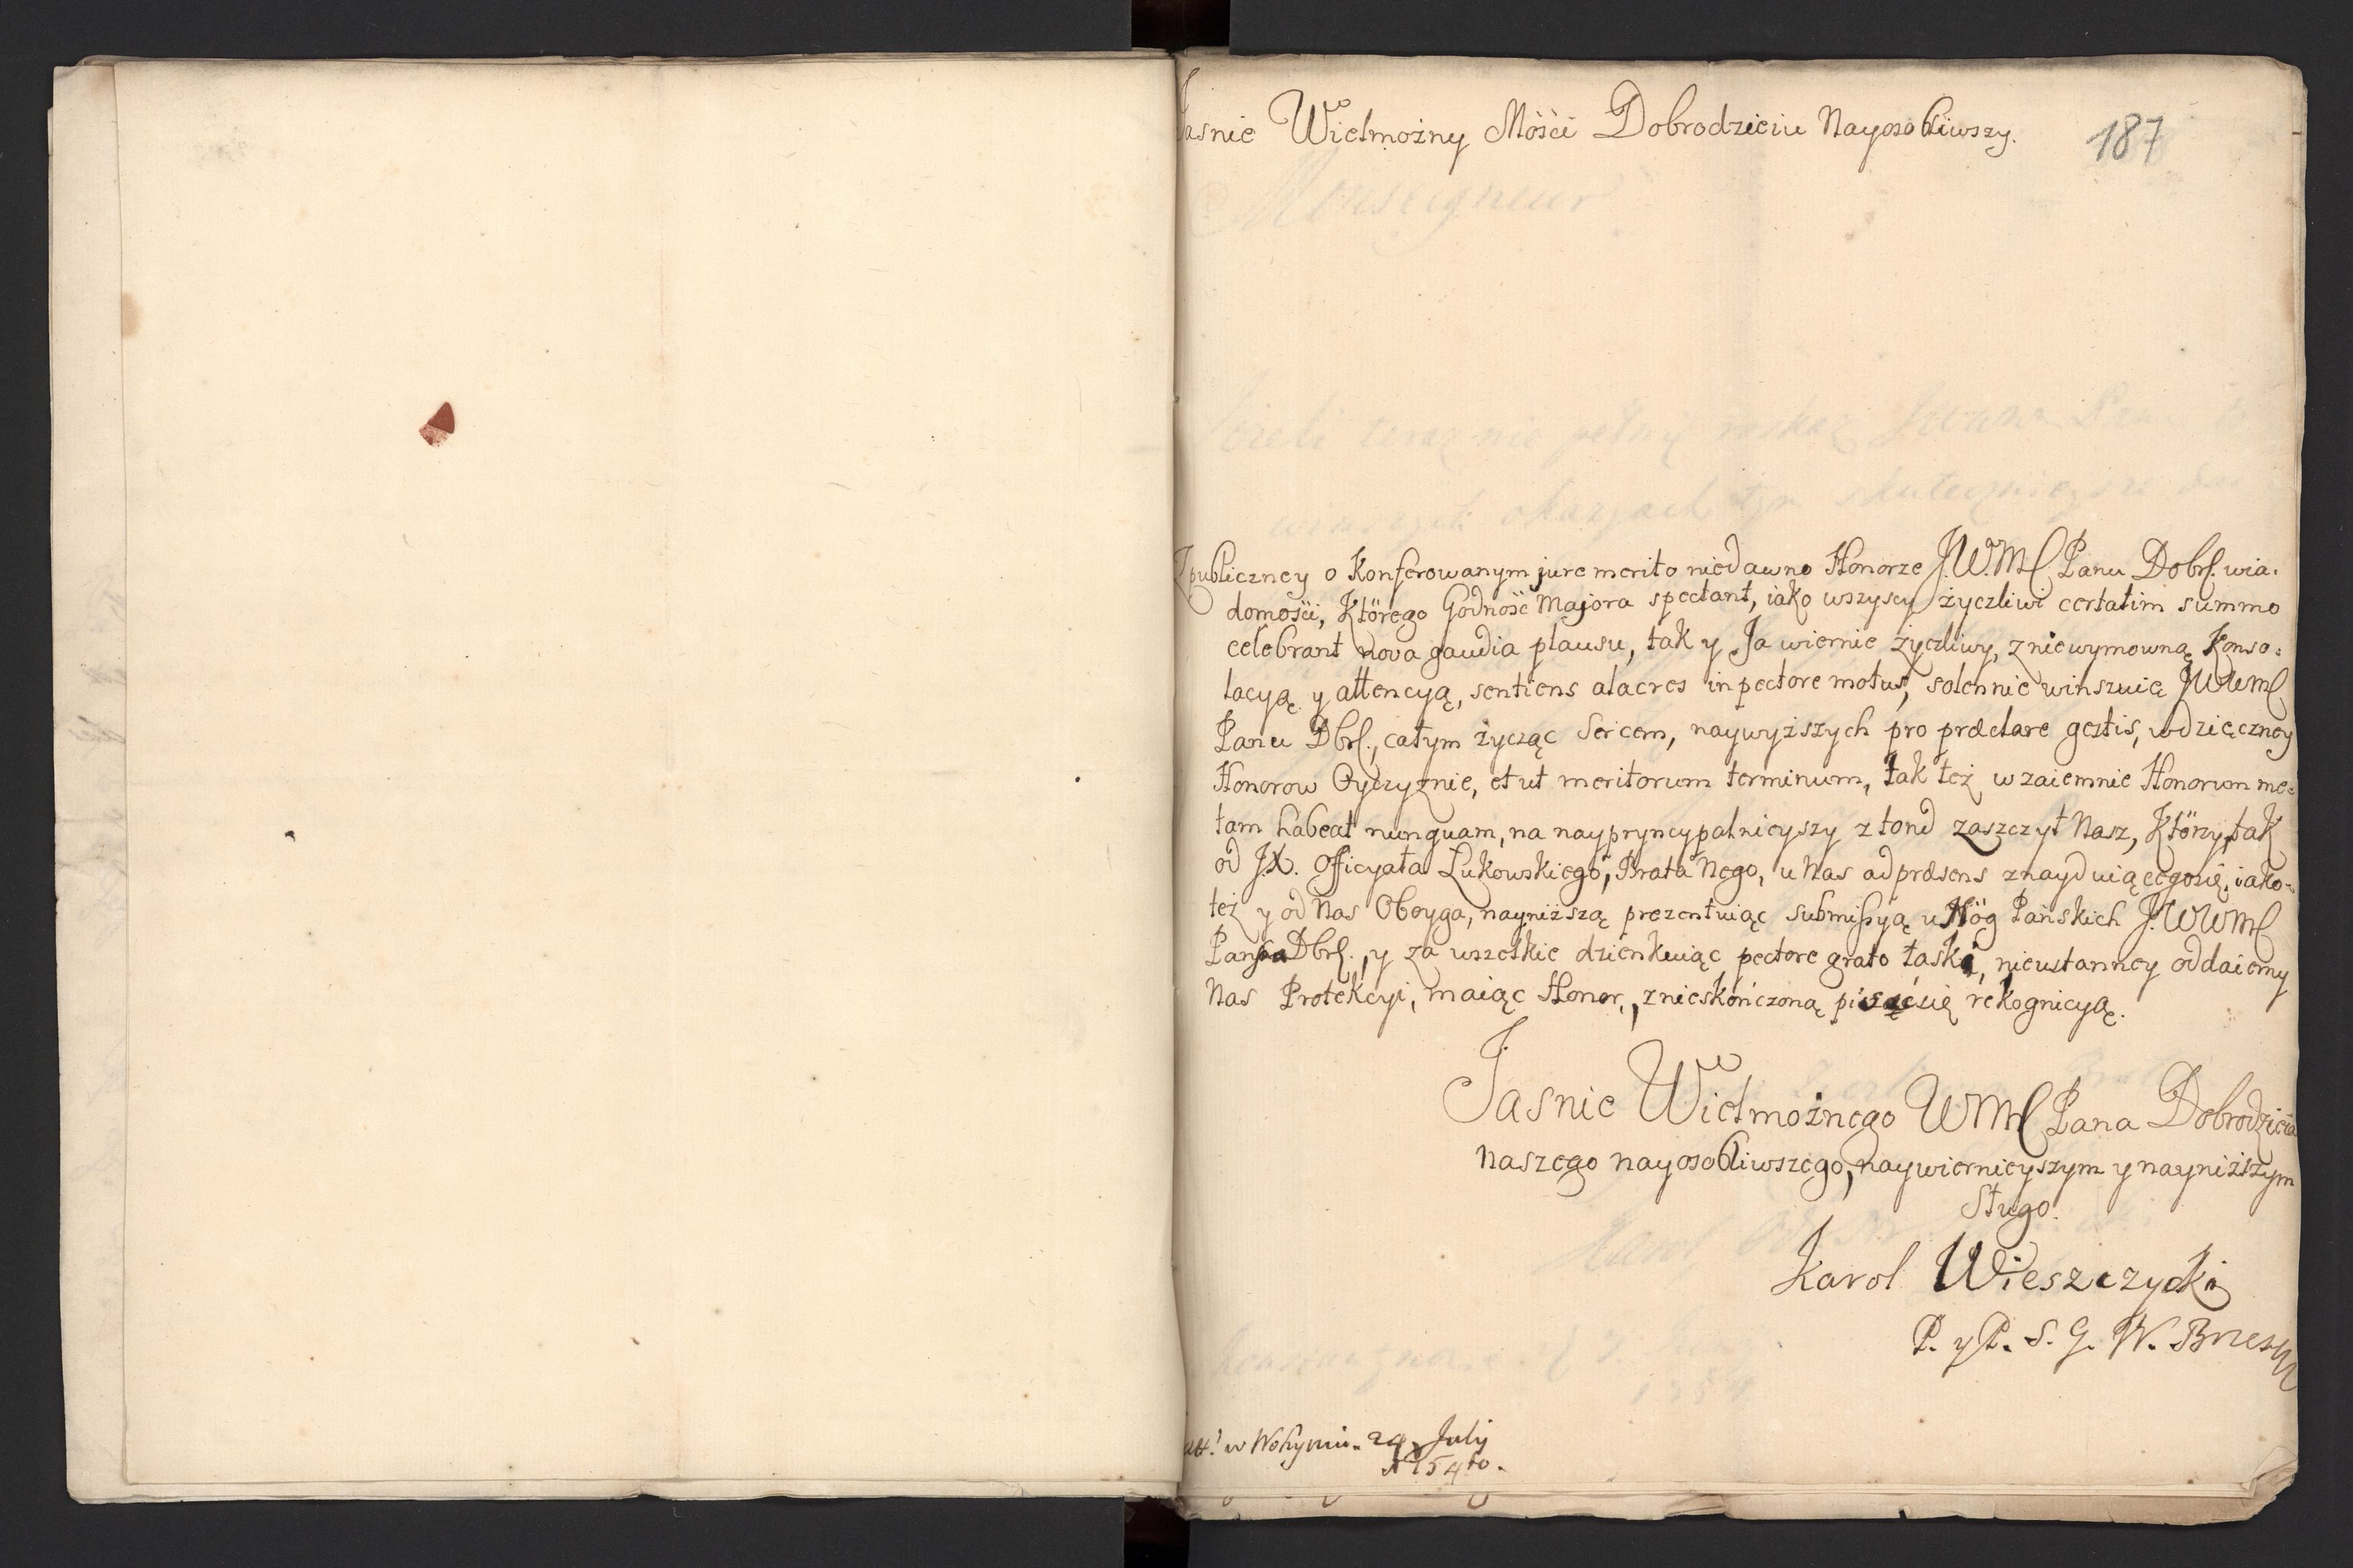 Jasnie Wielmożny Mości Dobrodzieiu Nayosobliwszy.
187
Monseigneur
Z publiczney o Konferowanym jure merito niedawno Honorze J.W.Mć Panu Dobrć. wia-
domości, Którego Godność Majora spectant, iako wszyscy życzliwi certatim summo
celebrant nova gaudia plausu, tak y Ja wiernie życzliwy, z niewymowną Konso-
lacyą y attencyą, sentiens alacres in pectore motus, solennie winszuię JWWMć
Panu Dbrć., całym życząc Sercem, naywyższych pro præclare gestis, wdzięczney
Honorow Oyczyznie, et ut meritorum terminum, tak też wzaiemnie Honorum me-
tam habeat nunquam, na naypryncypalnieyszy ztond zaszczyt Nasz, Którzy, tak
od J.X. Officyała Łukowskiego, Brata Nego, u Nas ad præsens znayduiącegosię, iako-
też y od Nas Oboyga, nayniższą prezentuiąc submissyą u Nóg Pańskich J.WWMć
Pana Dbrć., y za wszelkie dzienkuiąc pectore grato łaski, nieustanney oddaiemy
Nas Protekcyi, maiąc Honor, z nieskończoną pisać się rekognicyą.
Jasnie Wielmożnego WMć Pana Dobrodzieia
Naszego nayosobliwszego, naywiernieyszym y nayniższym
Sługo.
Karol Wieszczycki
P. y P. S. G. W. Brzeski
w Wohyniu. 24 July
1754to.